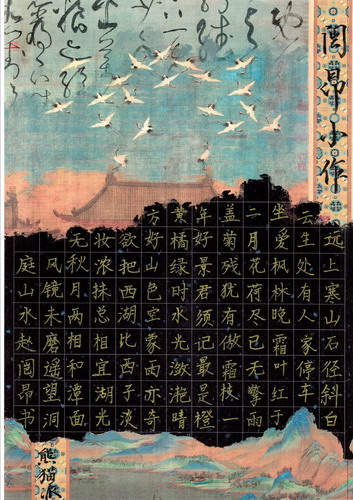 闾昂小作
远上寒山石径斜白
云生处有人家停车
坐爱枫林晚霜叶红于
二月花荷尽已无擎雨
盖菊残犹有傲霜枝一
年好景君须记最是橙
黄橘绿时水光潋滟晴
方好山色空蒙雨亦奇
欲把西湖比西子淡
妆浓抹总相宜湖光
无秋月两相和潭面
风镜未磨遥望洞
庭山水赵闾昂书
熊猫派